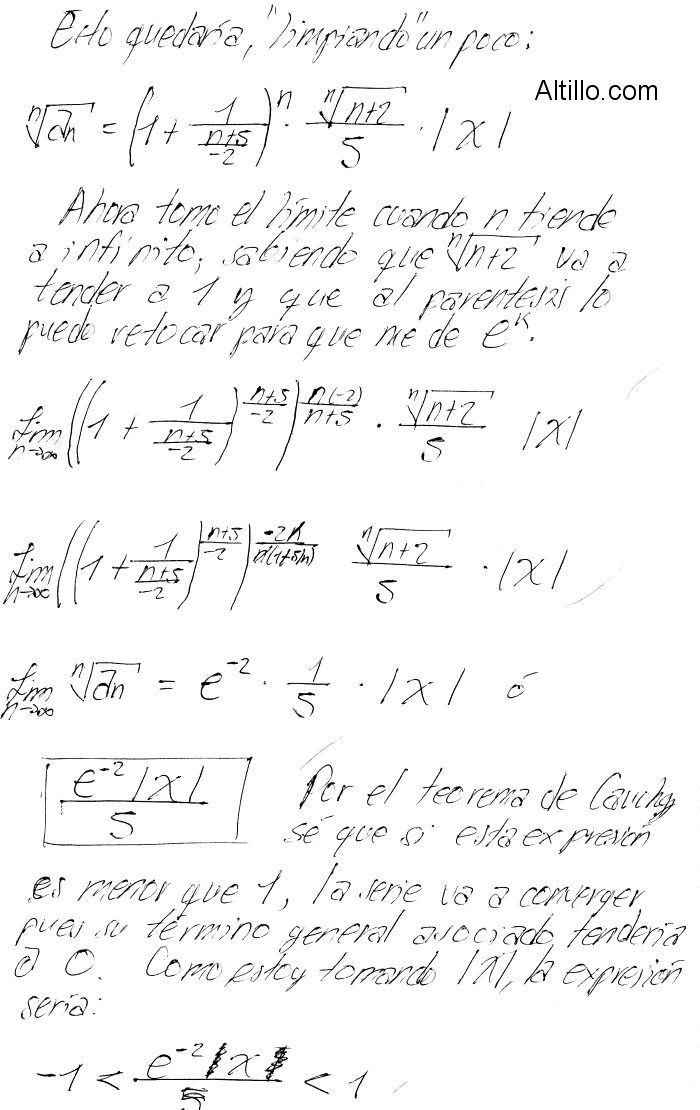 Esto quedaría, "limpiando" un poco:
Altillo.com
ⁿ√an = (1 + 1/((n+5)/-2))ⁿ · ⁿ√(n+2)/5 · |x|
Ahora tomo el límite cuando n tiende
a infinito, sabiendo que ⁿ√(n+2) va a
tender a 1 y que al parentesis lo
puedo retocar para que me de eᵏ.
Lim n→∞ ((1 + 1/((n+5)/-2))^((n+5)/-2))^(n(-2)/(n+5)) · ⁿ√(n+2)/5 |x|
Lim n→∞ ((1 + 1/((n+5)/-2))^((n+5)/-2))^(-2n/(n(1+5/n))) ⁿ√(n+2)/5 · |x|
Lim n→∞ ⁿ√an = e⁻² · 1/5 · |x| ó
e⁻²|x|/5 Por el teorema de Cauchy
sé que si esta expresión
es menor que 1, la serie va a converger
pues su término general asociado tendería
a 0. Como estoy tomando |x|, la expresión
sería:
-1 < e⁻² x/5 < 1